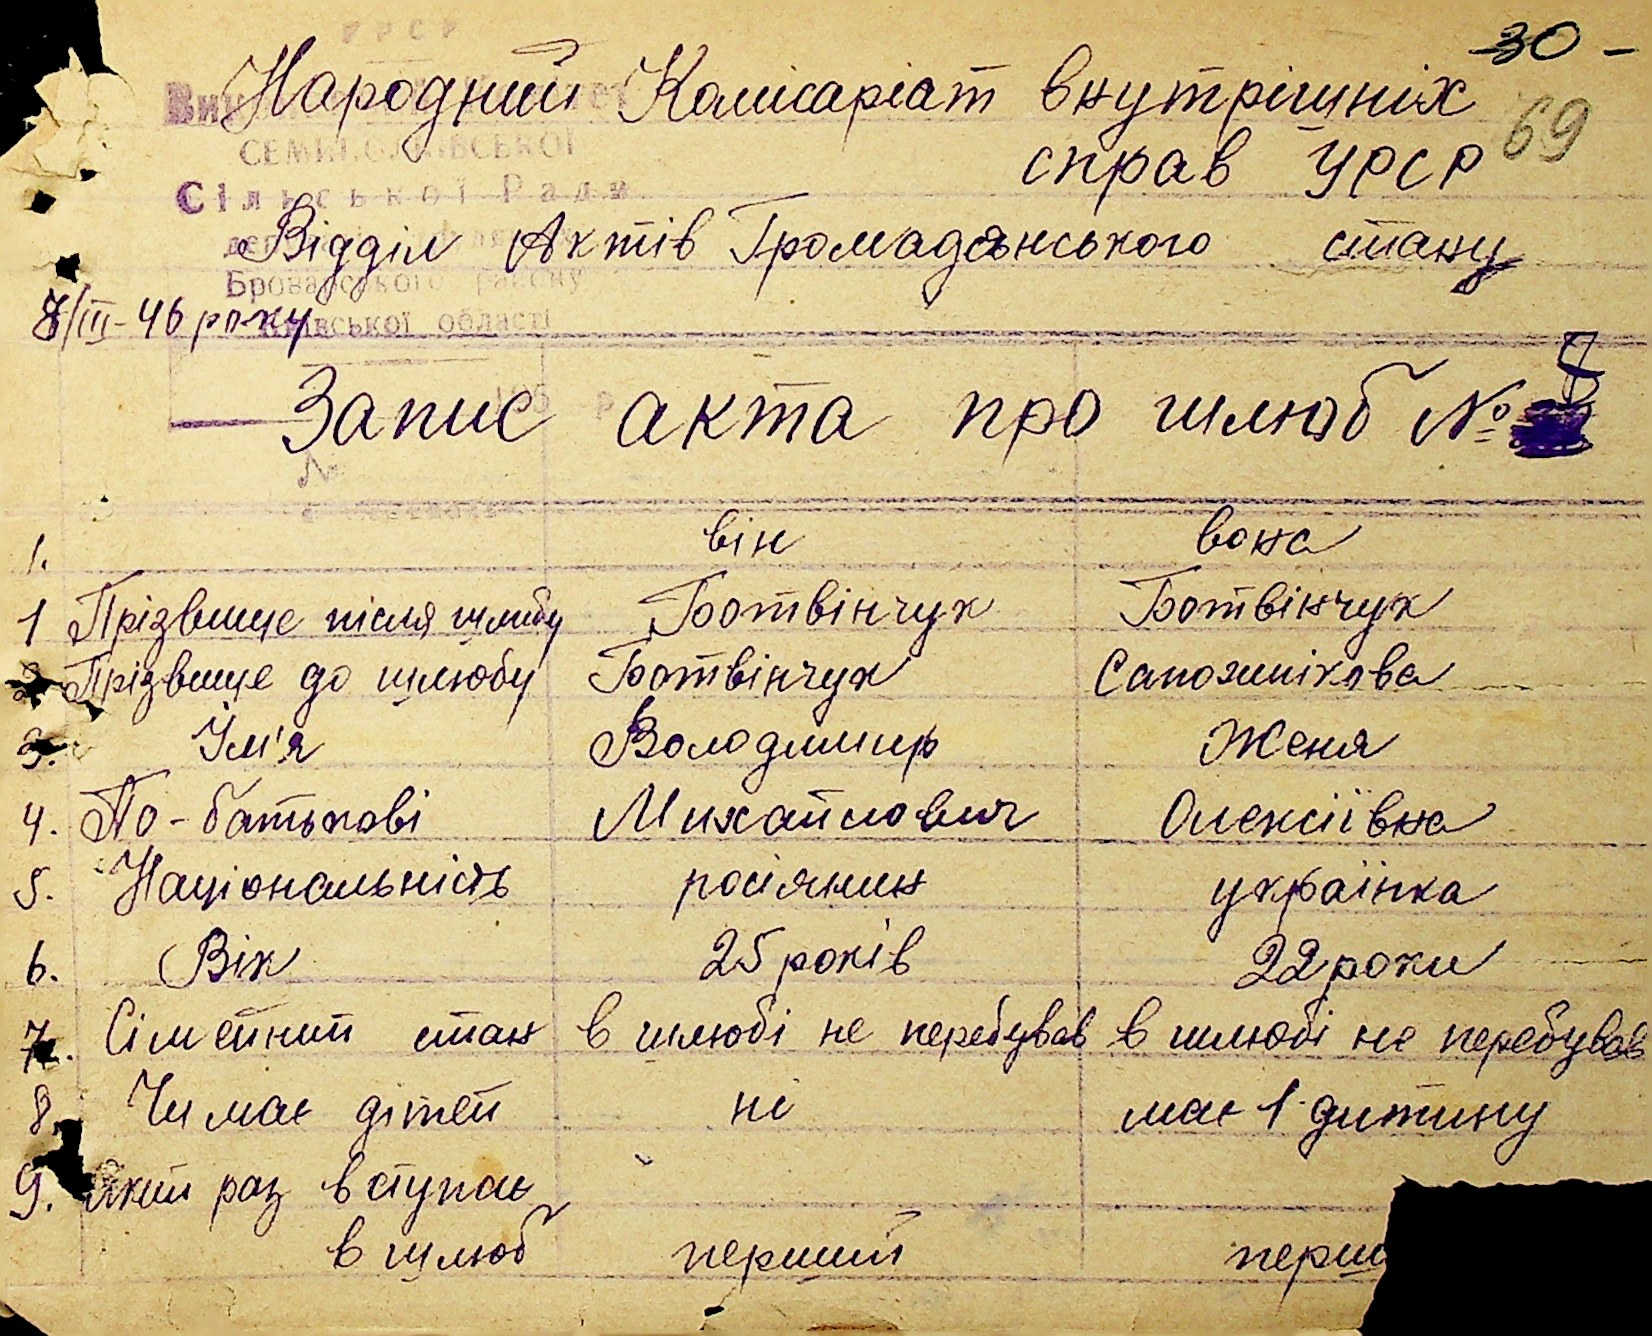 30 -
УРСР
Народний Комісаріат внутрішніх
69
справ УРСР
СЕМИПОЛКІВСЬКОЇ
Сільської Ради
Відділ Актів Громадянського стану
Броварського району
8/III-46 року
Київської області
195 р
Запис акта про шлюб № 8
№
1. він вона
1 Прізвище після шлюбу Ботвінчук Ботвінчук
2 Прізвище до шлюбу Ботвінчук Сапожнікова
3. Їм'я Володимир Женя
4. По-батькові Михайлович Олексіївна
5. Національність росіянин українка
6. Вік 25 років 22 роки
7. Сімейний стан в шлюбі не перебував в шлюбі не перебував
8. Чи має дітей ні має 1 дитину
9. який раз вступає
в шлюб перший перши